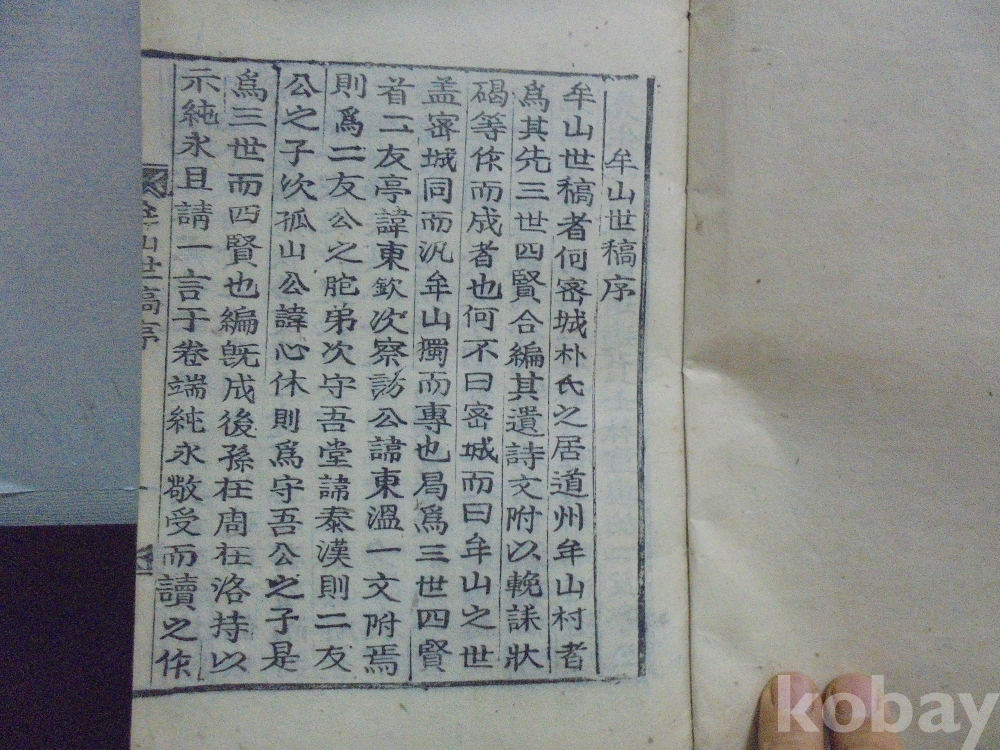 牟山世稿序
牟山世稿者何密城朴氏之居道州牟山村者
爲其先三世四賢合編其遺詩文附以輓誄狀
碣等作而成者也何不曰密城而曰牟山之世
盖密城同而汎牟山獨而專也曷爲三世四賢
首二友亭諱東欽次察訪公諱東溫一文附焉
則爲二友公之胞弟次守吾堂諱泰漢則二友
公之子次孤山公諱心休則爲守吾公之子是
爲三世而四賢也編旣成後孫在周在洛持以
示純永且請一言于卷端純永敬受而讀之作
牟山世稿序
kobay